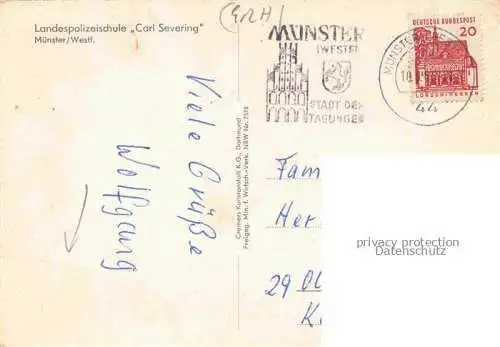 Landespolizeischule „Carl Severing"
Münster/Westf.
MÜNSTER
(WESTF)
STADT DER
TAGUNGEN
DEUTSCHE BUNDESPOST
20
LORSCH/HESSEN
MÜNSTER
44
Viele Grüße
Wolfgang
Cramers Kunstanstalt K.G., Dortmund
Freigeg. Min. f. Wirtsch.-Verk. NRW Nr.
Fam
Her
29 Ol
privacy protection
Datenschutz